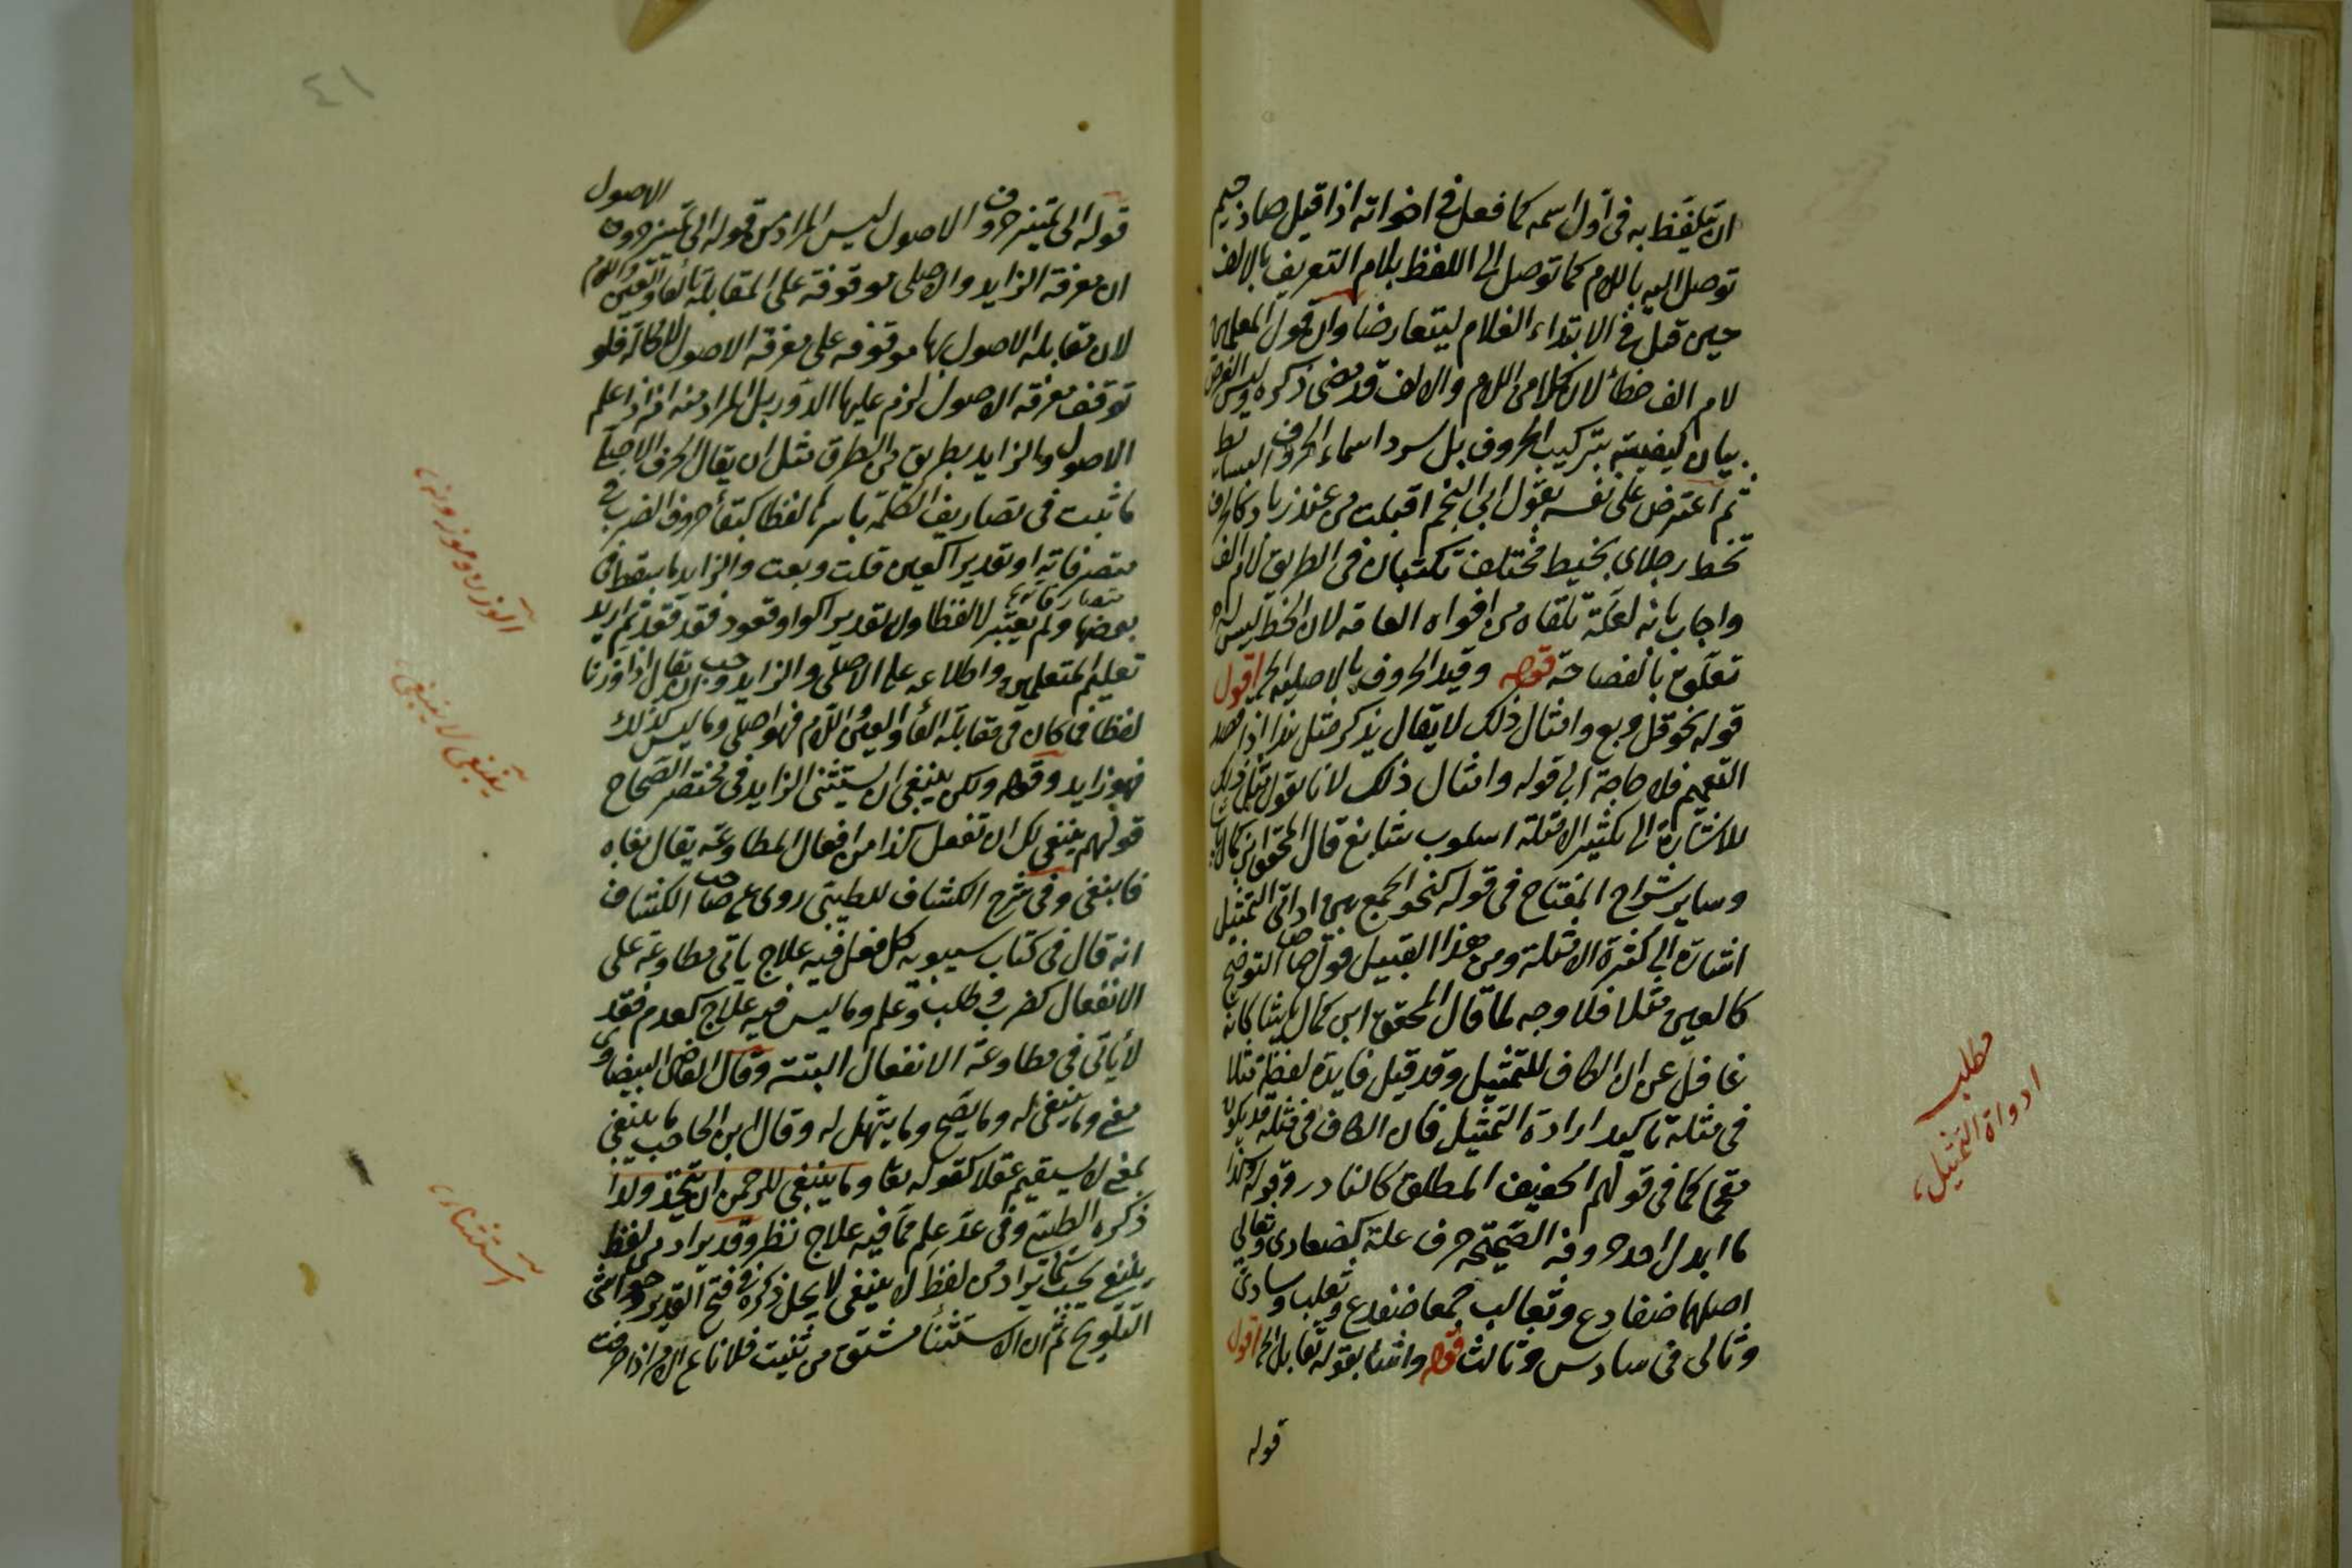 ان يتلفظ به فى اول اسمه كما فعل فى اخواته اذا قيل صاد جيم
توصل اليه باللام كما توصل الى اللفظ بلام التعريف بالالف
حين قيل فى الابتداء الغلام ليتعارضا وان قول المعلمين
لام الف خطأ لان كلا من اللام والالف قد مضى ذكره وليس الغرض
بيان كيفية تركيب الحروف بل سرد اسماء الحروف البسائط
ثم اعترض على نفسه بقول ابى النجم اقبلت من عند زياد كالخرف
تخط رجلاى بخيط مختلف تكتبان فى الطريق لام الف
واجاب بانه لعله تلقاه من افواه العامة لان الخط ليس له
تعلق بالفصاحة قوله وقيد الحروف بالاصلية الخ اقول
قوله نحو قل وبع وامثال ذلك لا يقال يذكر مثل هذا اذا قصد
التعميم فلا حاجة الى قوله وامثال ذلك لانا نقول مثل ذلك
للاشارة الى تكثير الامثلة اسلوب شايع قال المحقق ابن كمال
وساير شراح المفتاح فى قوله كنحو الجمع بين اداتى التمثيل
اشارة الى كثرة الامثلة ومن هذا القبيل قول صاحب التوضيح
كالعين مثلا فلا وجه لما قال المحقق ابن كمال باشا كانه
غافل عن ان الكاف للتمثيل وقد قيل فايدة لفظة مثلا
فى مثله تاكيد ارادة التمثيل فان الكاف فى مثله قد يكون
مقحما كما فى قولهم الخفيف المطلق كالنادر وقوله وكذا
ما ابدل احد حروفه الصحيحة حرف علة كضفادى وثعالى
اصلهما ضفادع وثعالب جمعا ضفدع وثعلب وسادى
وثالى فى سادس وثالث قوله واشار بقوله تقابل الخ اقول
قوله
مطلب
ادواة التمثيل
٤١
قوله الى تمييز حروف الاصول ليس المراد من قوله الى تمييز حروف الاصول
ان معرفة الزايد والاصلى موقوفة على المقابلة بالفا والعين واللام
لان مقابلة الاصول بها موقوفه على معرفة الاصول لا محالة فلو
توقف معرفة الاصول لزم عليها الدور بل المراد منه انه اذا علم
الاصول والزايد بطريق من الطرق مثل ان يقال الحرف الاصلى
ما ثبت فى تصاريف الكلمة باسرها لفظا كبقأ حروف الضرب فى
متصرفاته او تقديرا كعين قلت وبعت والزايد ما سقط فى
بعضها ولم يعتبر لا لفظا ولا تقديرا كواو قعود فقد قعد ثم اريد
تعليم المتعلمين واطلاعه على الاصلى والزايد وجب ان يقال اذا وزنا
لفظا فما كان فى مقابلة الفأ والعين واللام فهو اصلى وما ليس كذلك
فهو زايد وقوله ولكن ينبغى ان يستثنى الزايد فى مختصر الصحاح
قولهم ينبغى لك ان تفعل كذا من افعال المطاوعة يقال بغاه
فانبغى وفى شرح الكشاف للطيبى روى عن صاحب الكشاف
انه قال فى كتاب سيبويه كل فعل فيه علاج ياتى مطاوعة على
الانفعال كضرب وطلب وعلم وما ليس فيه علاج كعدم فقد
لا ياتى فى مطاوعة الانفعال البتة وقال القاضى البيضاوى
معنى وما ينبغى له وما يصح وما يتسهل له وقال ابن الحاجب ما ينبغى
بمعنى لا يستقيم عقلا كقوله تعا وما ينبغى للرحمن ان يتخذ ولدا
ذكره الطيبى وفى عد علم مما فيه علاج نظر وقد يراد من لفظ
ينبغى يجب كما يراد من لفظ لا ينبغى لا يحل ذكره فى فتح القدير وحواشى
التلويح ثم ان الاستثنأ مشتق من ثنيت فلانا عن الامر اذا صرفته
الوزن وموزونه
ينبغى لا ينبغى
استثناء